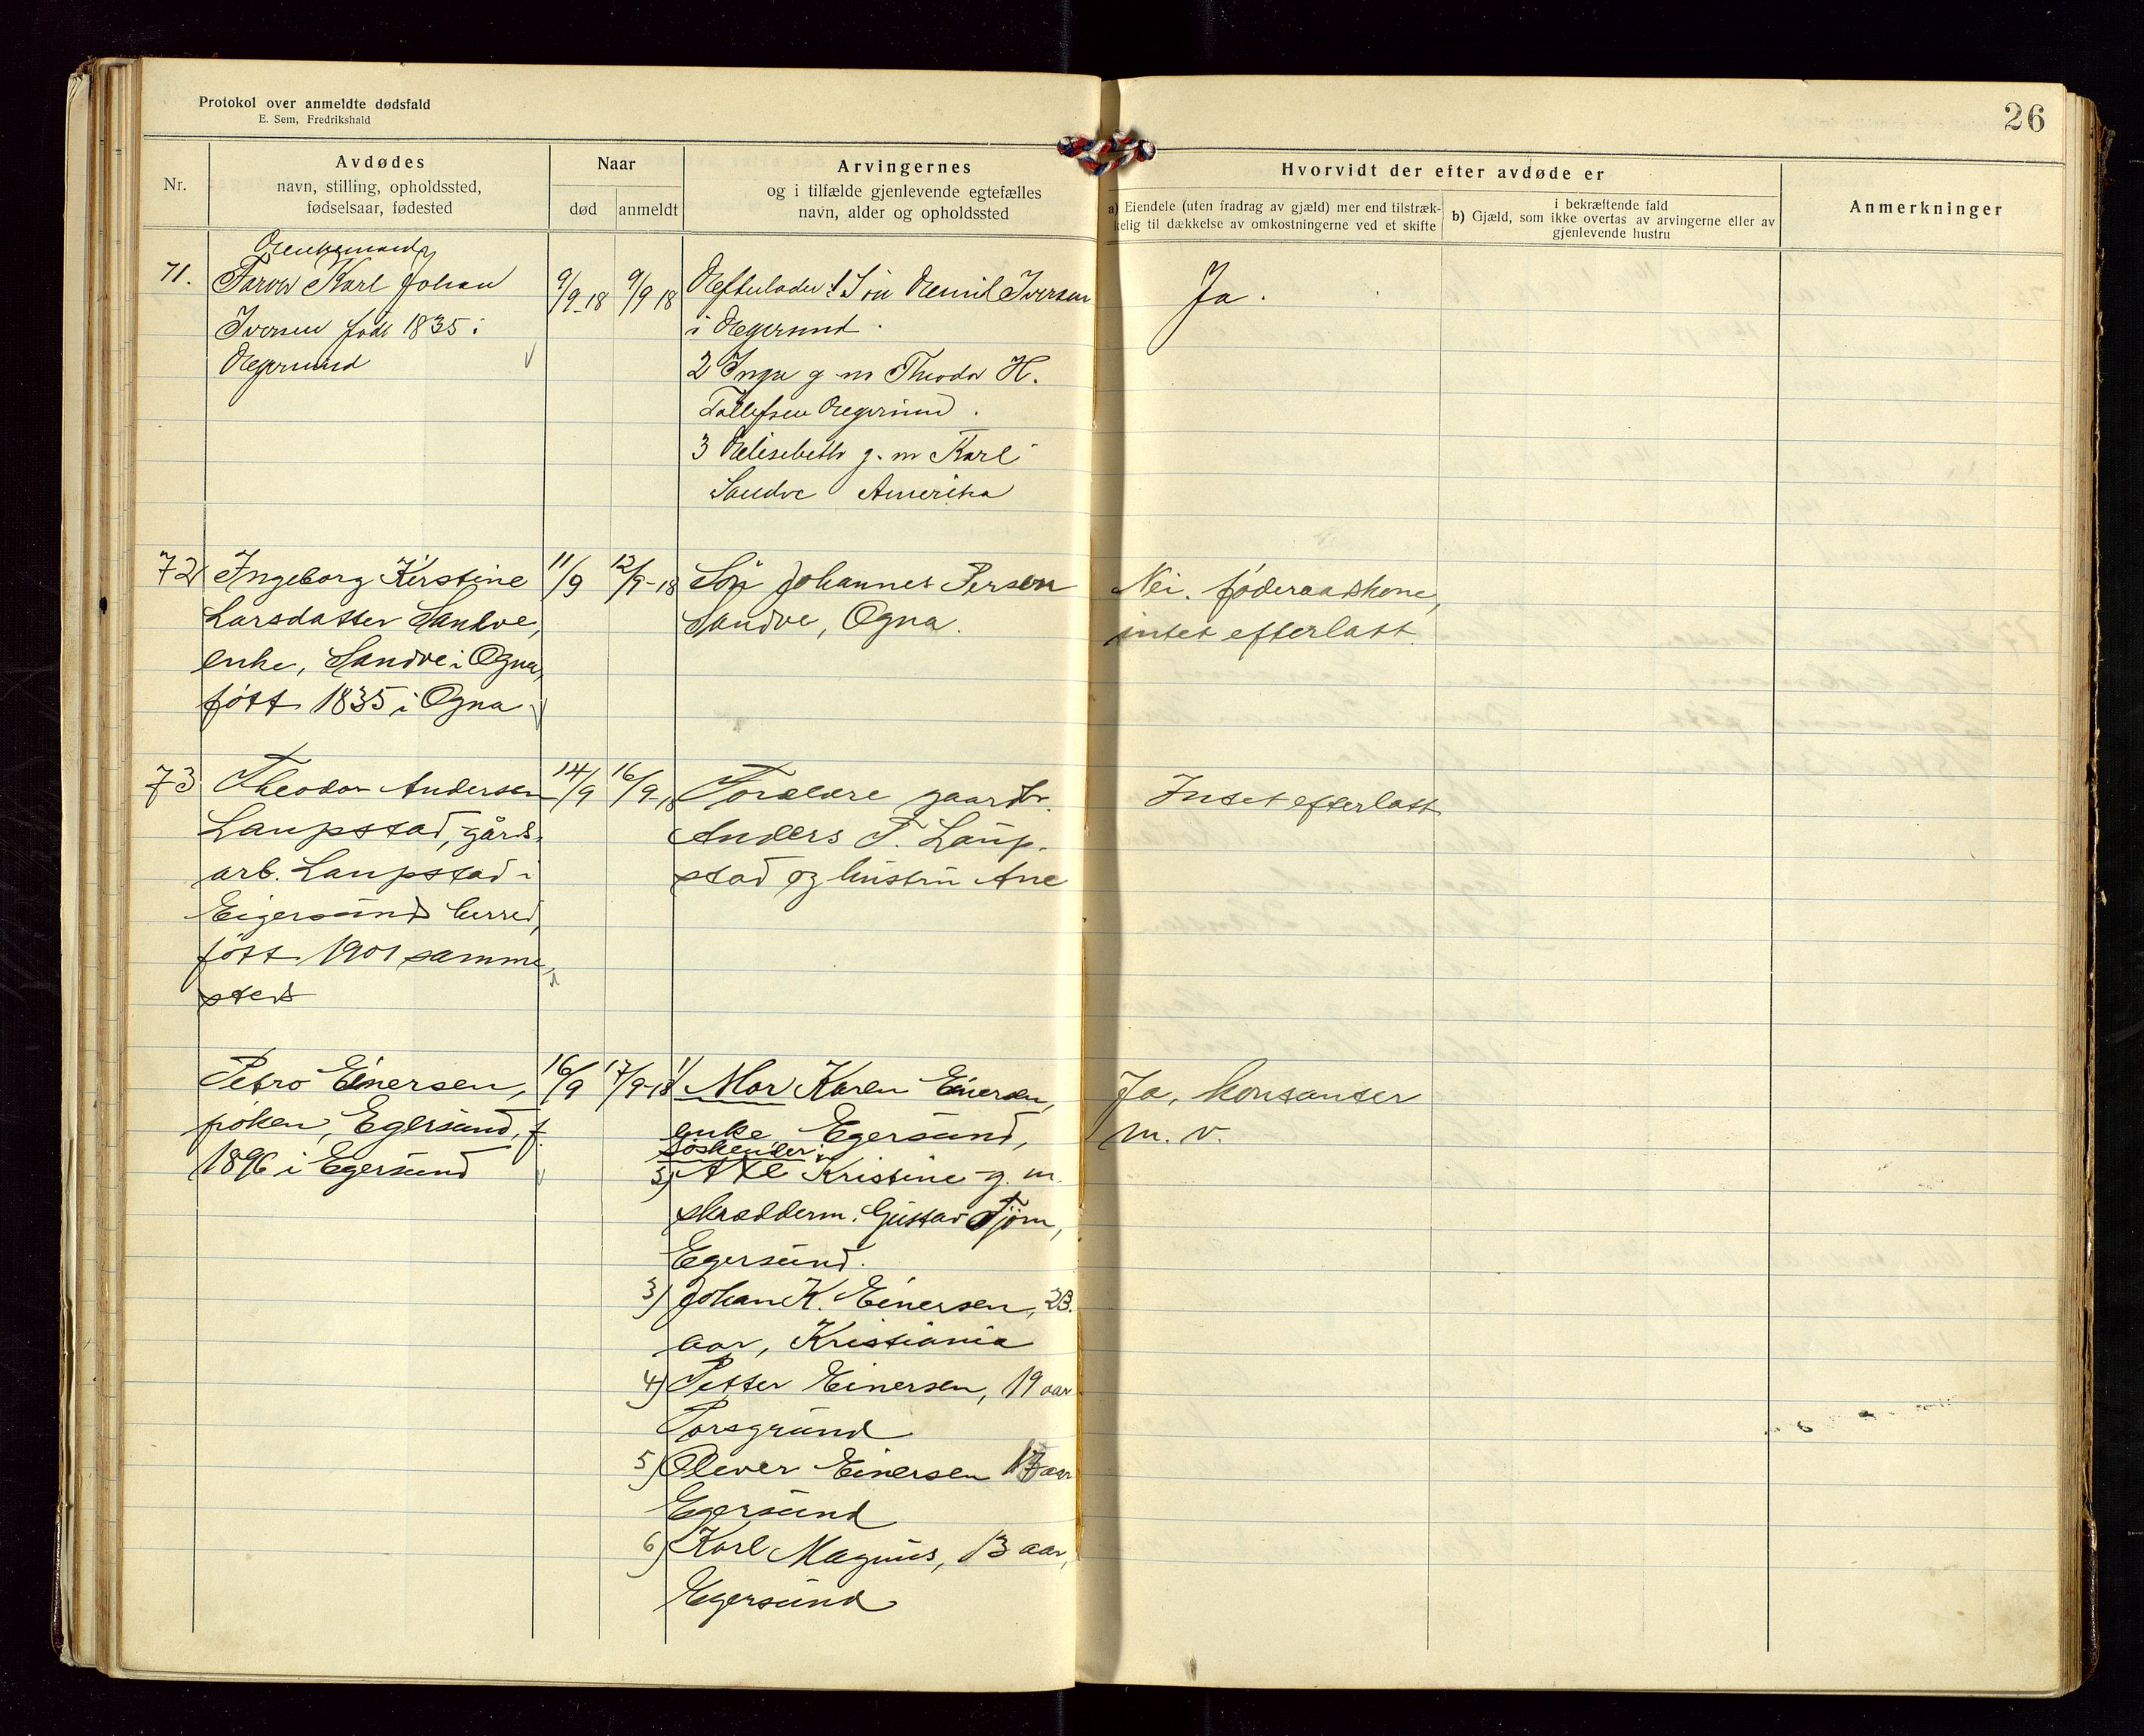 Protokol over anmeldte dødsfald
E. Sem, Fredrikshald
26
Nr.
Avdødes
navn, stilling, opholdssted,
fødselsaar, fødested
Naar
død
anmeldt
Arvingernes
og i tilfælde gjenlevende egtefælles
navn, alder og opholdssted
Hvorvidt der efter avdøde er
a) Eiendele (uten fradrag av gjæld) mer end tilstræk-
kelig til dækkelse av omkostningerne ved et skifte
i bekræftende fald
b) Gjæld, som ikke overtas av arvingerne eller av
gjenlevende hustru
Anmerkninger
Enkemand
71.
Farver Karl Johan
Iversen født 1835 i
Egersund
9/9-18
9/9 18
Efterlader 1 Søn Emil Iversen
i Egersund.
2 Inga g m Theodor H.
Tollefsen Egersund.
3 Elisebeth g. m Karl
Sandve Amerika
Ja.
72
Ingeborg Kirstine
Larsdatter Sandve,
enke, Sandve i Ogna,
født 1835 i Ogna
11/9
12/9-18
Søn Johannes Person
Sandve, Ogna.
Nei. føderaadskone,
intet efterlatt.
73
Theodor Andersen
Laupstad, gårds-
arb. Laupstad i
Eigersund herred,
født 1901 samme-
steds
14/9
16/9-18
Forældre gaardbr.
Anders T. Laup-
stad og hustru Ane
Intet efterlatt
Petro Einersen,
pøken, Egersund, f.
1896 i Egersund
16/9
17/9-18
1) Mor Karen Einersen,
enke, Egersund,
Søskender:
2) Kristine g. m.
skrædderm. Gustav Tjørn,
Egersund.
3) Johan K. Einersen, 23.
aar, Kristiania
4) Petter Einersen, 19 aar
Porsgrund
5) Olever Einersen 17 aar
Egersund
6) Karl Magnus, 13 aar,
Egersund
Ja, kontanter
m. v.